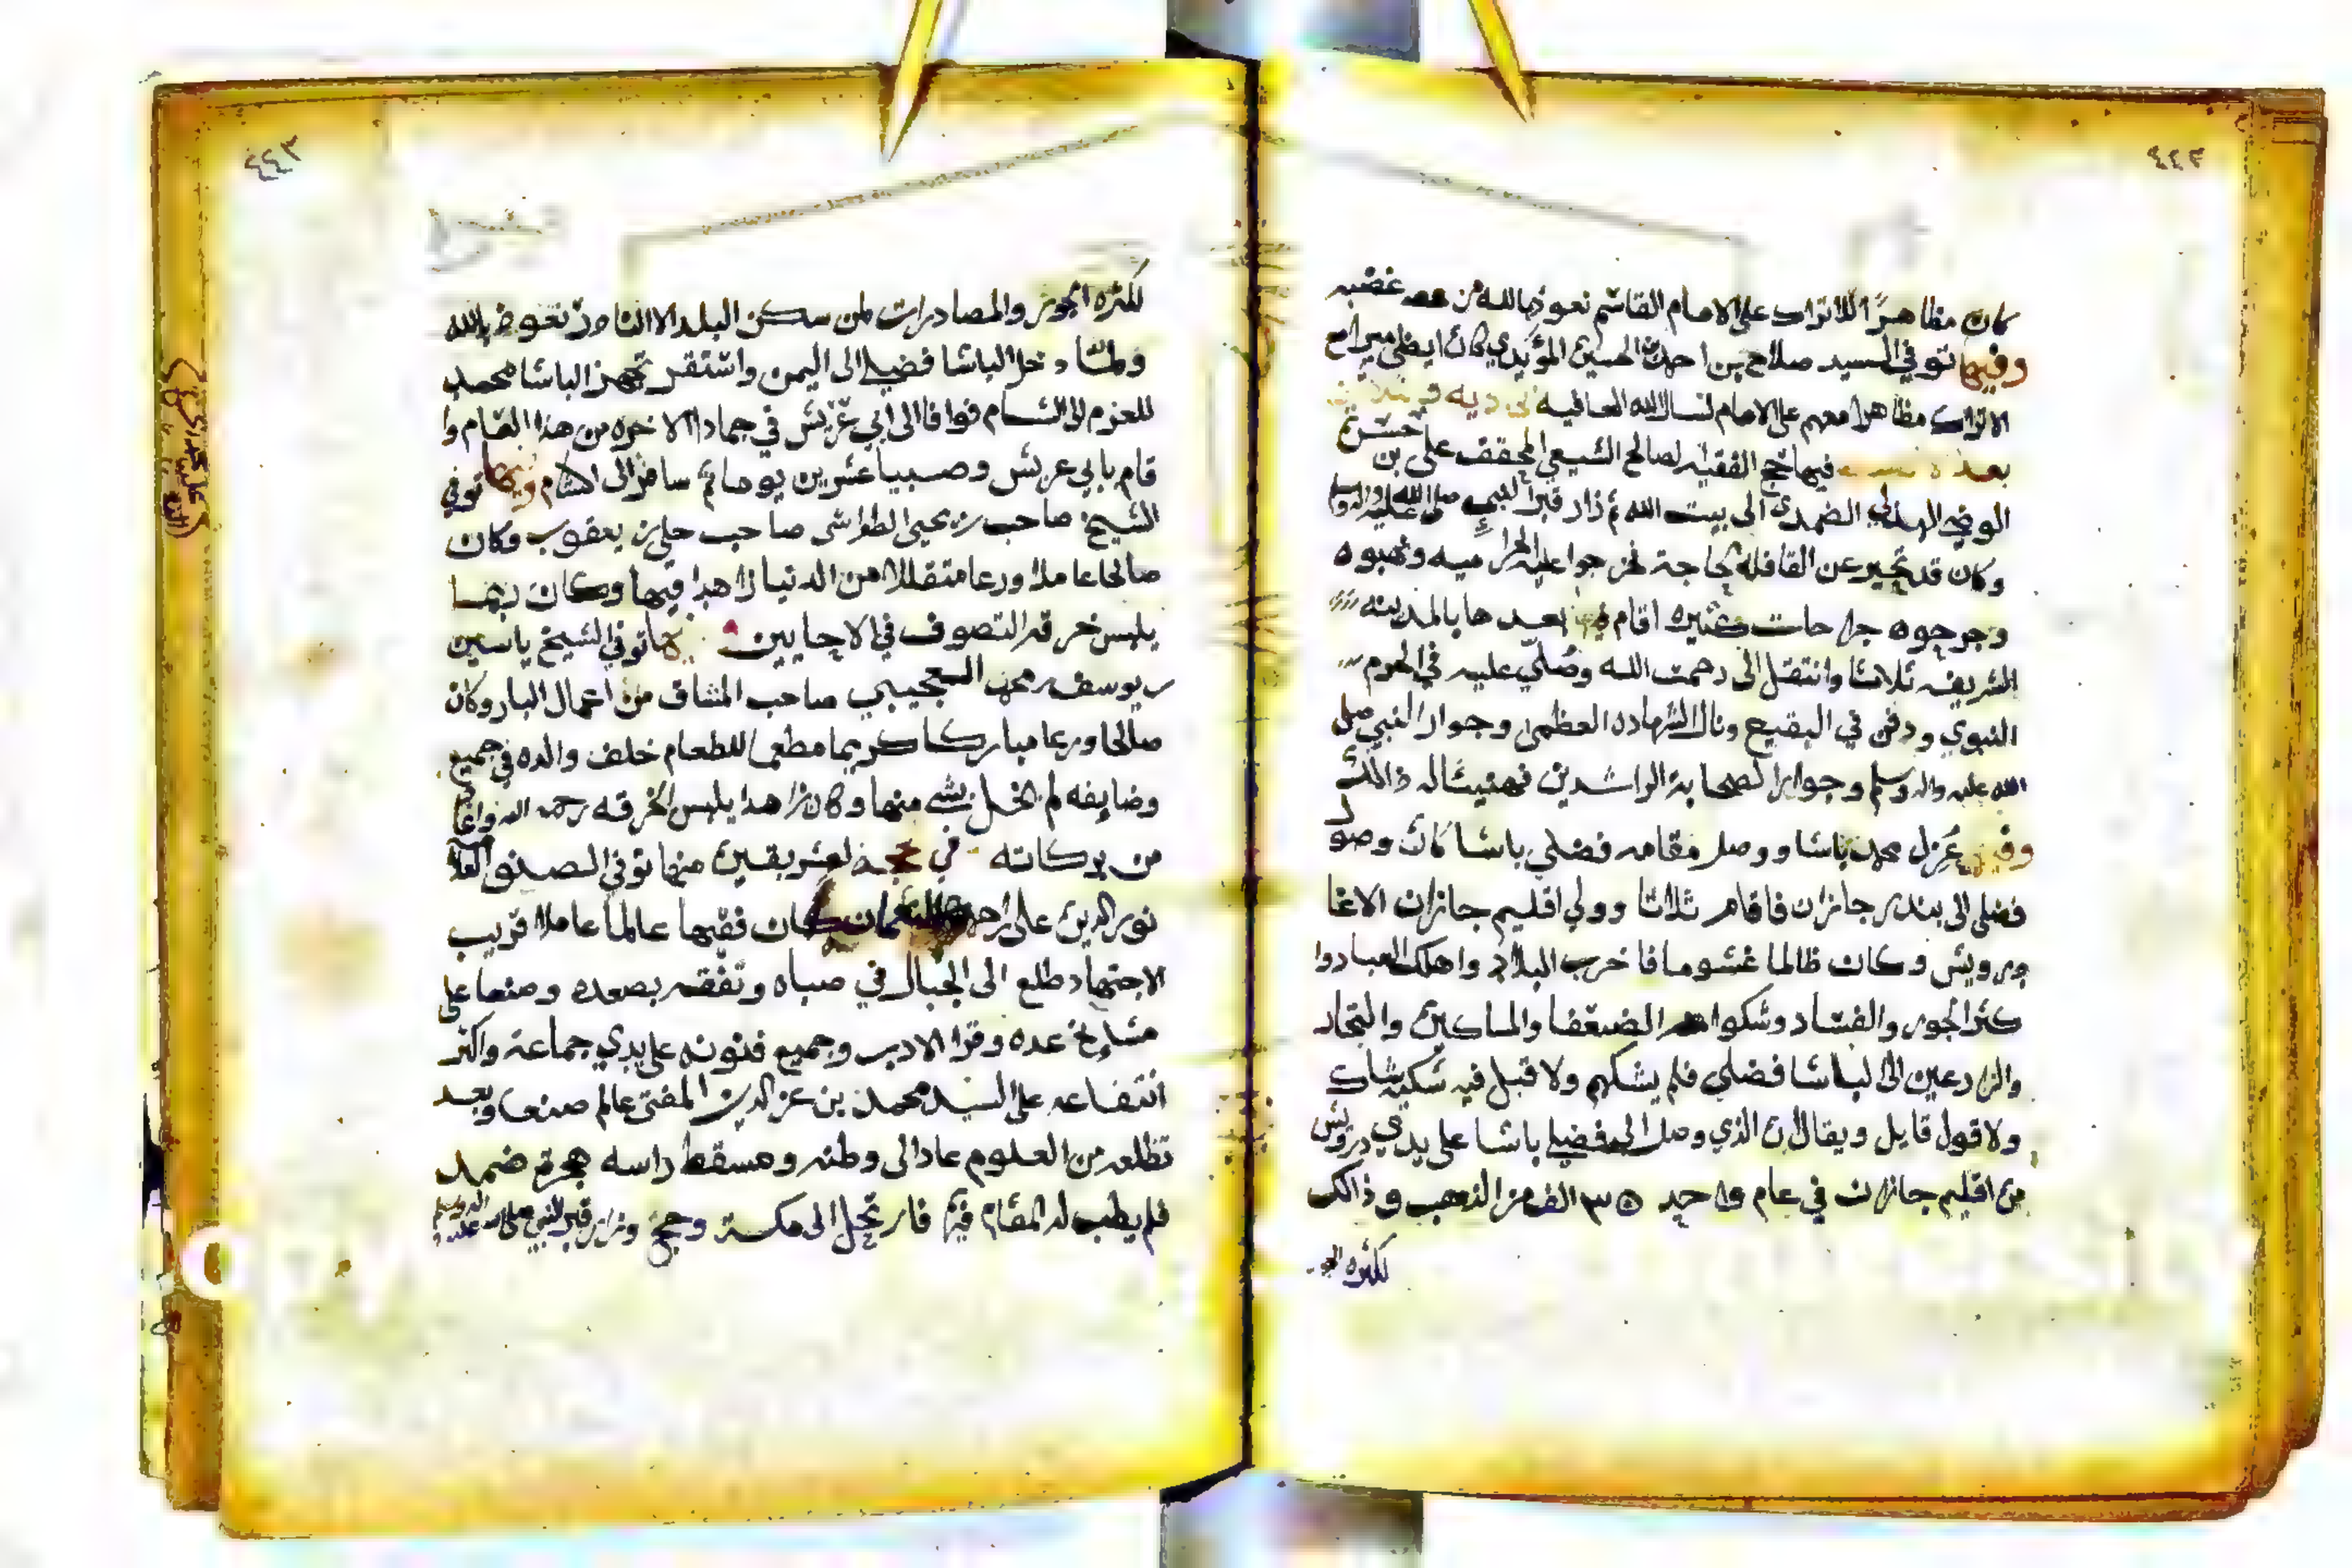 ٤٤٢
كان مظاهرًا للاتراك على الامام القاسم نعوذ بالله من غضبه
وفيها توفي السيد صلاح بن احمد الحسين المؤيدي كان ايضا مع
الاتراك مظاهرا معهم على الامام نسال الله العافيه
بعد فيها حج الفقيه لصالح الشيعي المحقق على بن حسن
الوضي الهذلي الضمدي الى بيت الله ثم زار قبر النبي صلى الله عليه واله وسلم
وكان قد تحير عن القافله لحاجة فخرجوا عليه الحراميه ونهبوه
وجرحوه جراحات كثيره اقام بعدها بالمدينه
الشريفه ثلاثا وانتقل الى رحمت الله وصُلّي عليه في الحرم
النبوي ودفن في البقيع ونال الشهاده العظمى وجوار النبي صلى
الله عليه واله وسلم وجوار الصحابة الراشدين فهنيئا له ذالك
وفيها عُزل محمد باشا ووصل مقامه فضلي باشا كان وصول
فضلي الى بندر جازان فاقام ثلاثا وولي اقليم جازان الاغا
درويش وكان ظالما غشوما فاخرب البلاد واهلك العباد وا
كثر الجور والفساد وشكوا الضعفا والمساكين والتجار
والزارعين الى الباشا فضلي فلم يشكهم ولا قبل فيه شكية شاك
ولا قول قايل ويقال ان الذي وصل الى فضلي باشا على يدي درويش
من اقليم جازان في عام واحد ٣٥ الف من الذهب وذالك
لكثره الجور
٤٤٣
لكثره الجور والمصادرات لمن سكن البلد الا النادر نعوذ بالله
ولما دخل الباشا فضلي الى اليمن واستقر تجهز الباشا محمد
للعزم الى الشام فوافا الى ابي عريش في جمادا الاخره من هذا العام وا
قام بابي عريش وصبيا عشرين يوما ثم سافر الى الشام وفيها توفي
الشيخ صاحب بن يحيى الطواشي صاحب حلي بن يعقوب وكان
صالحا عاملا ورعا متقللا من الدنيا زاهدا فيها وكان ربما
يلبس خرقة التصوف في الاحايين توفي الشيخ ياسين
بن يوسف بن محمد العجيبي صاحب المشاف من اعمال البار وكان
صالحا ورعا مباركا كريما مطعما للطعام خلف والده في جميع
وضايفه لم يخل بشي منها وكان زاهدا يلبس الخرقه رحمه الله واعا
من بركاته في لعشر بقين منها توفي الصنو العلا
نور الدين على بن احمد النعمان كان فقيها عالما عاملا قريب
الاجتهاد طلع الى الجبال في صباه وتفقه بصعده وصنعا على
مشايخ عده وقرا الادب وجميع فنونه على يدي جماعة واكثر
انتفاعه على السيد محمد بن عز الدين المفتي عالم صنعا وبعد
تظلعه من العلوم عاد الى وطنه ومسقط راسه هجرة ضمد
فلم يطب له المقام فيها فارتحل الى مكة وحج وزار قبر النبي صلى الله عليه واله وسلم